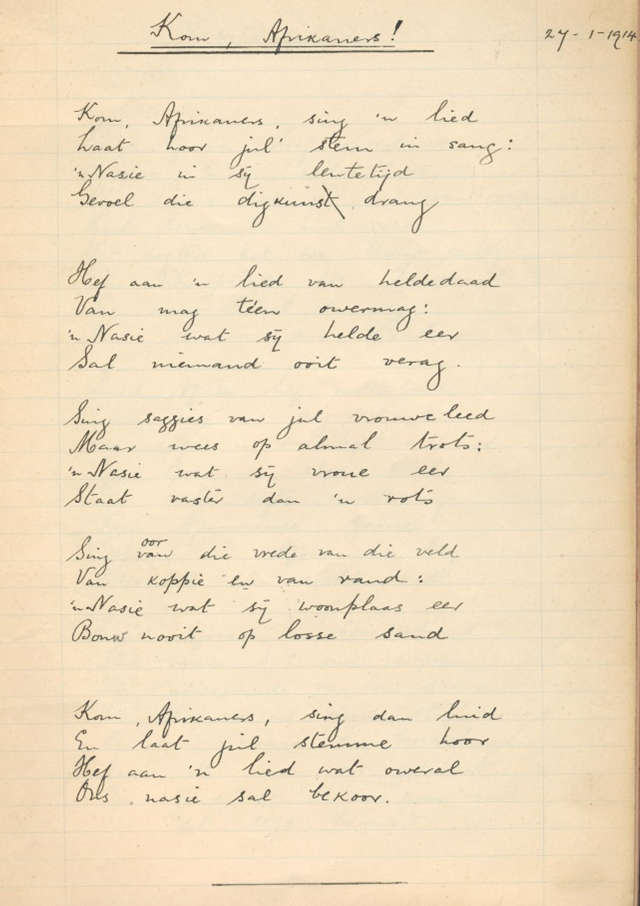 Kom, Afrikaners!
27-1-1914
Kom, Afrikaners, sing 'n lied
Laat hoor jul' stem in sang:
'n Nasie in sÿ lentetijd
Gevoel die digkuns drang
Hef aan 'n lied van heldedaad
Van mag téen owermag:
'n Nasie wat sÿ helde eer
Sal niemand ooit verag.
Sing saggies van jul vrouwe leed
Maar wees op almal trots:
'n Nasie wat sÿ vroue eer
Staat vaster dan 'n rots
Sing oor die vrede van die veld
Van koppie en van rand:
'n Nasie wat sÿ woonplaas eer
Bouw nooit op losse sand
Kom, Afrikaners, sing dan luid
En laat jul stemme hoor
Hef aan 'n lied wat oweral
Ons nasie sal bekoor.